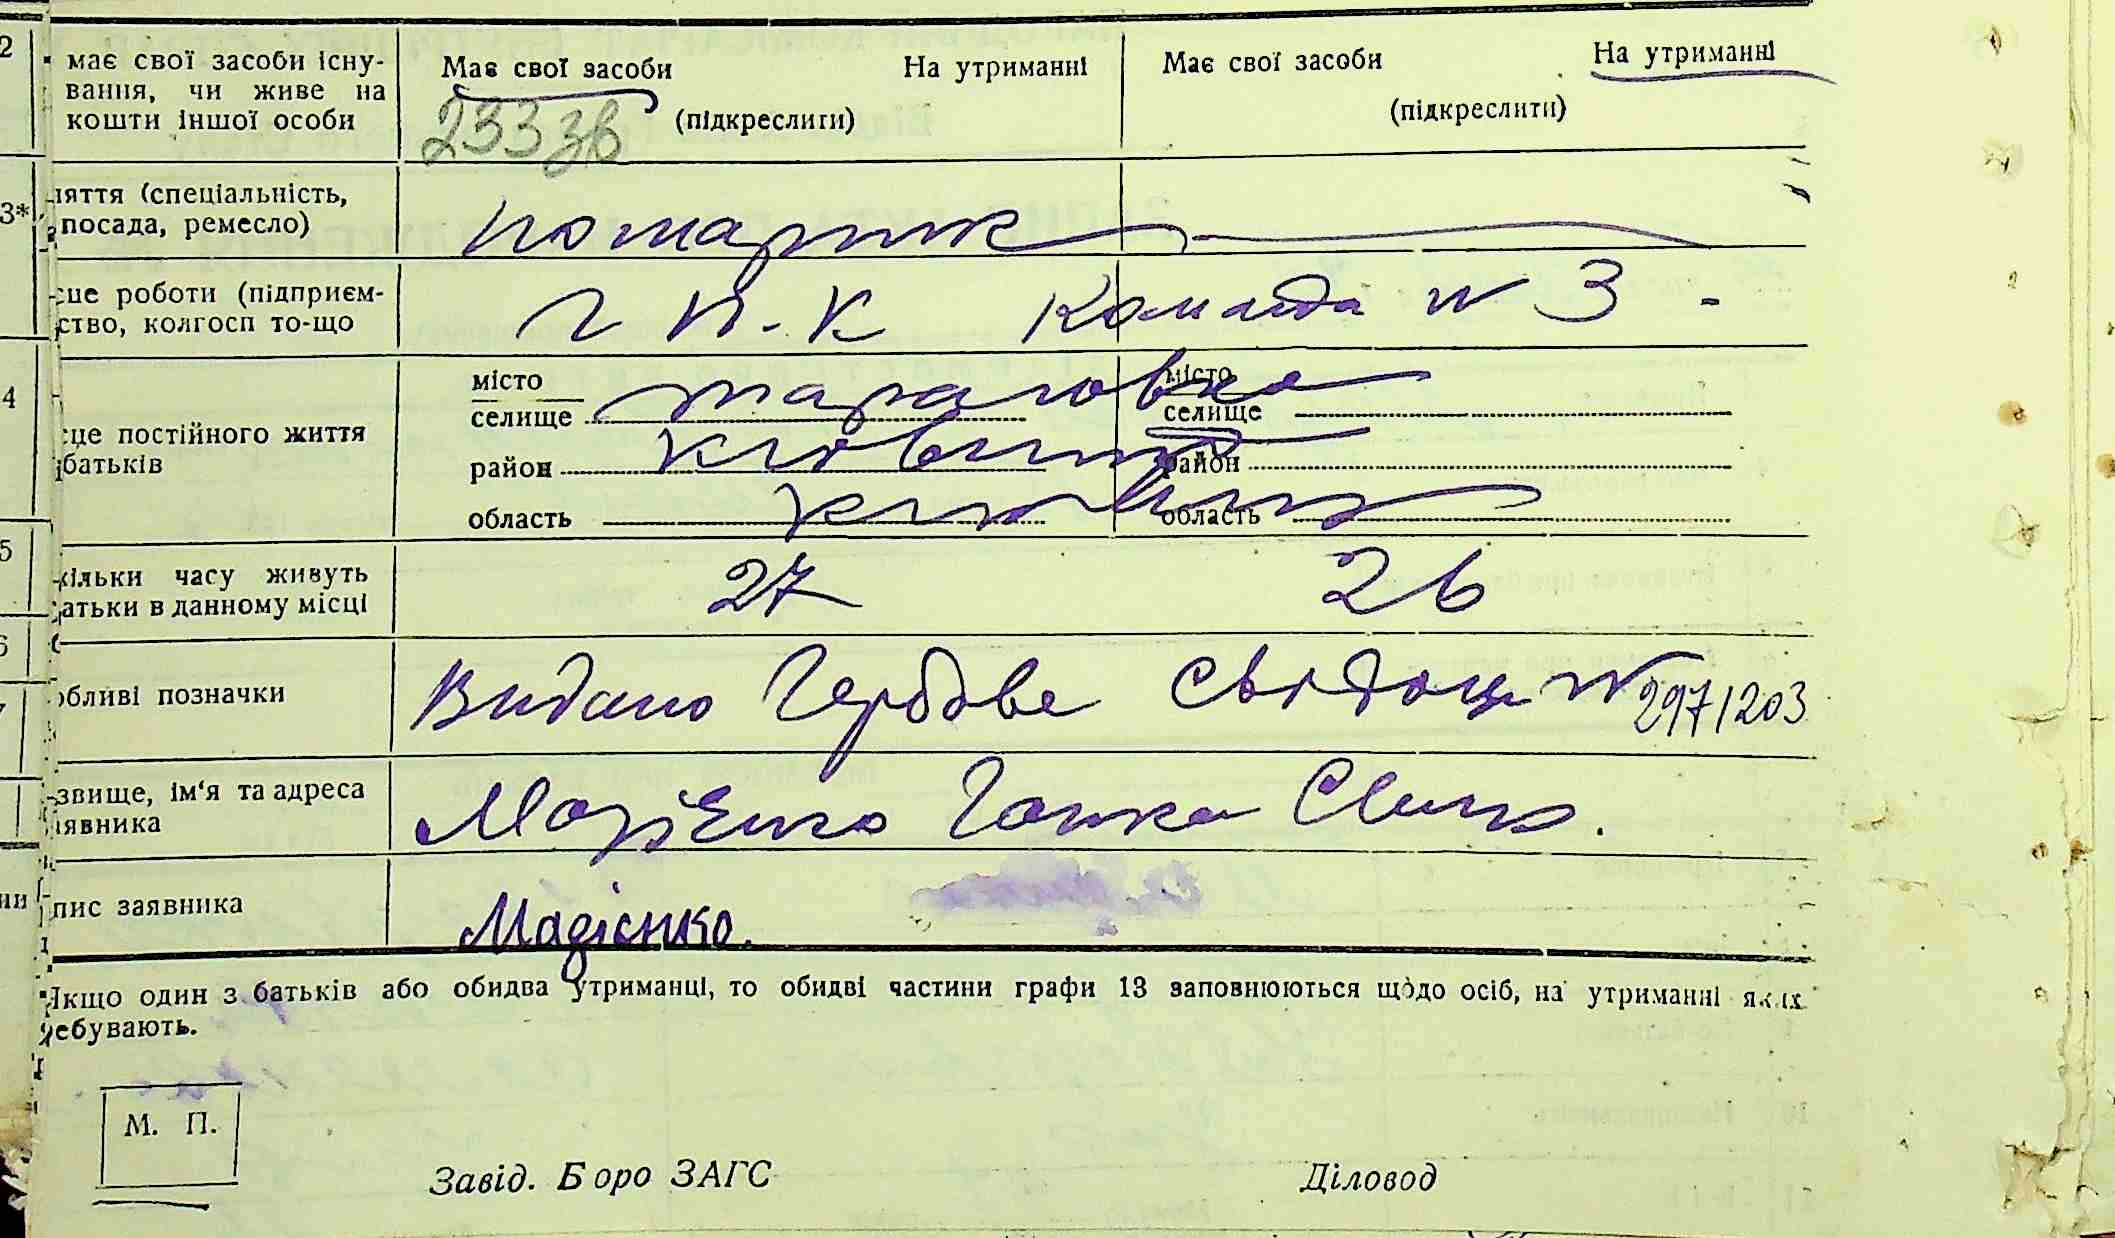 2 має свої засоби існу- Має свої засоби На утриманні Має свої засоби На утриманні
вання, чи живе на (підкреслити) (підкреслити)
кошти іншої особи 233 зв
3* няття (спеціальність,
посада, ремесло) пожарник
сце роботи (підприєм- Г П.К Команда № 3 -
ство, колгосп то-що
4 місто місто
селище селище
сце постійного життя район Київський район
батьків
область Київська область
5 кільки часу живуть 27 26
батьки в данному місці
6 обливі позначки Видано Гербове свідоц № 297/203
7 звище, ім'я та адреса Мадієнко Ганка
аявника
пис заявника Мадієнко.
Якщо один з батьків або обидва утриманці, то обидві частини графи 13 заповнюються щодо осіб, на утриманні яких
ребувають.
М. П.
Завід. Бюро ЗАГС Діловод